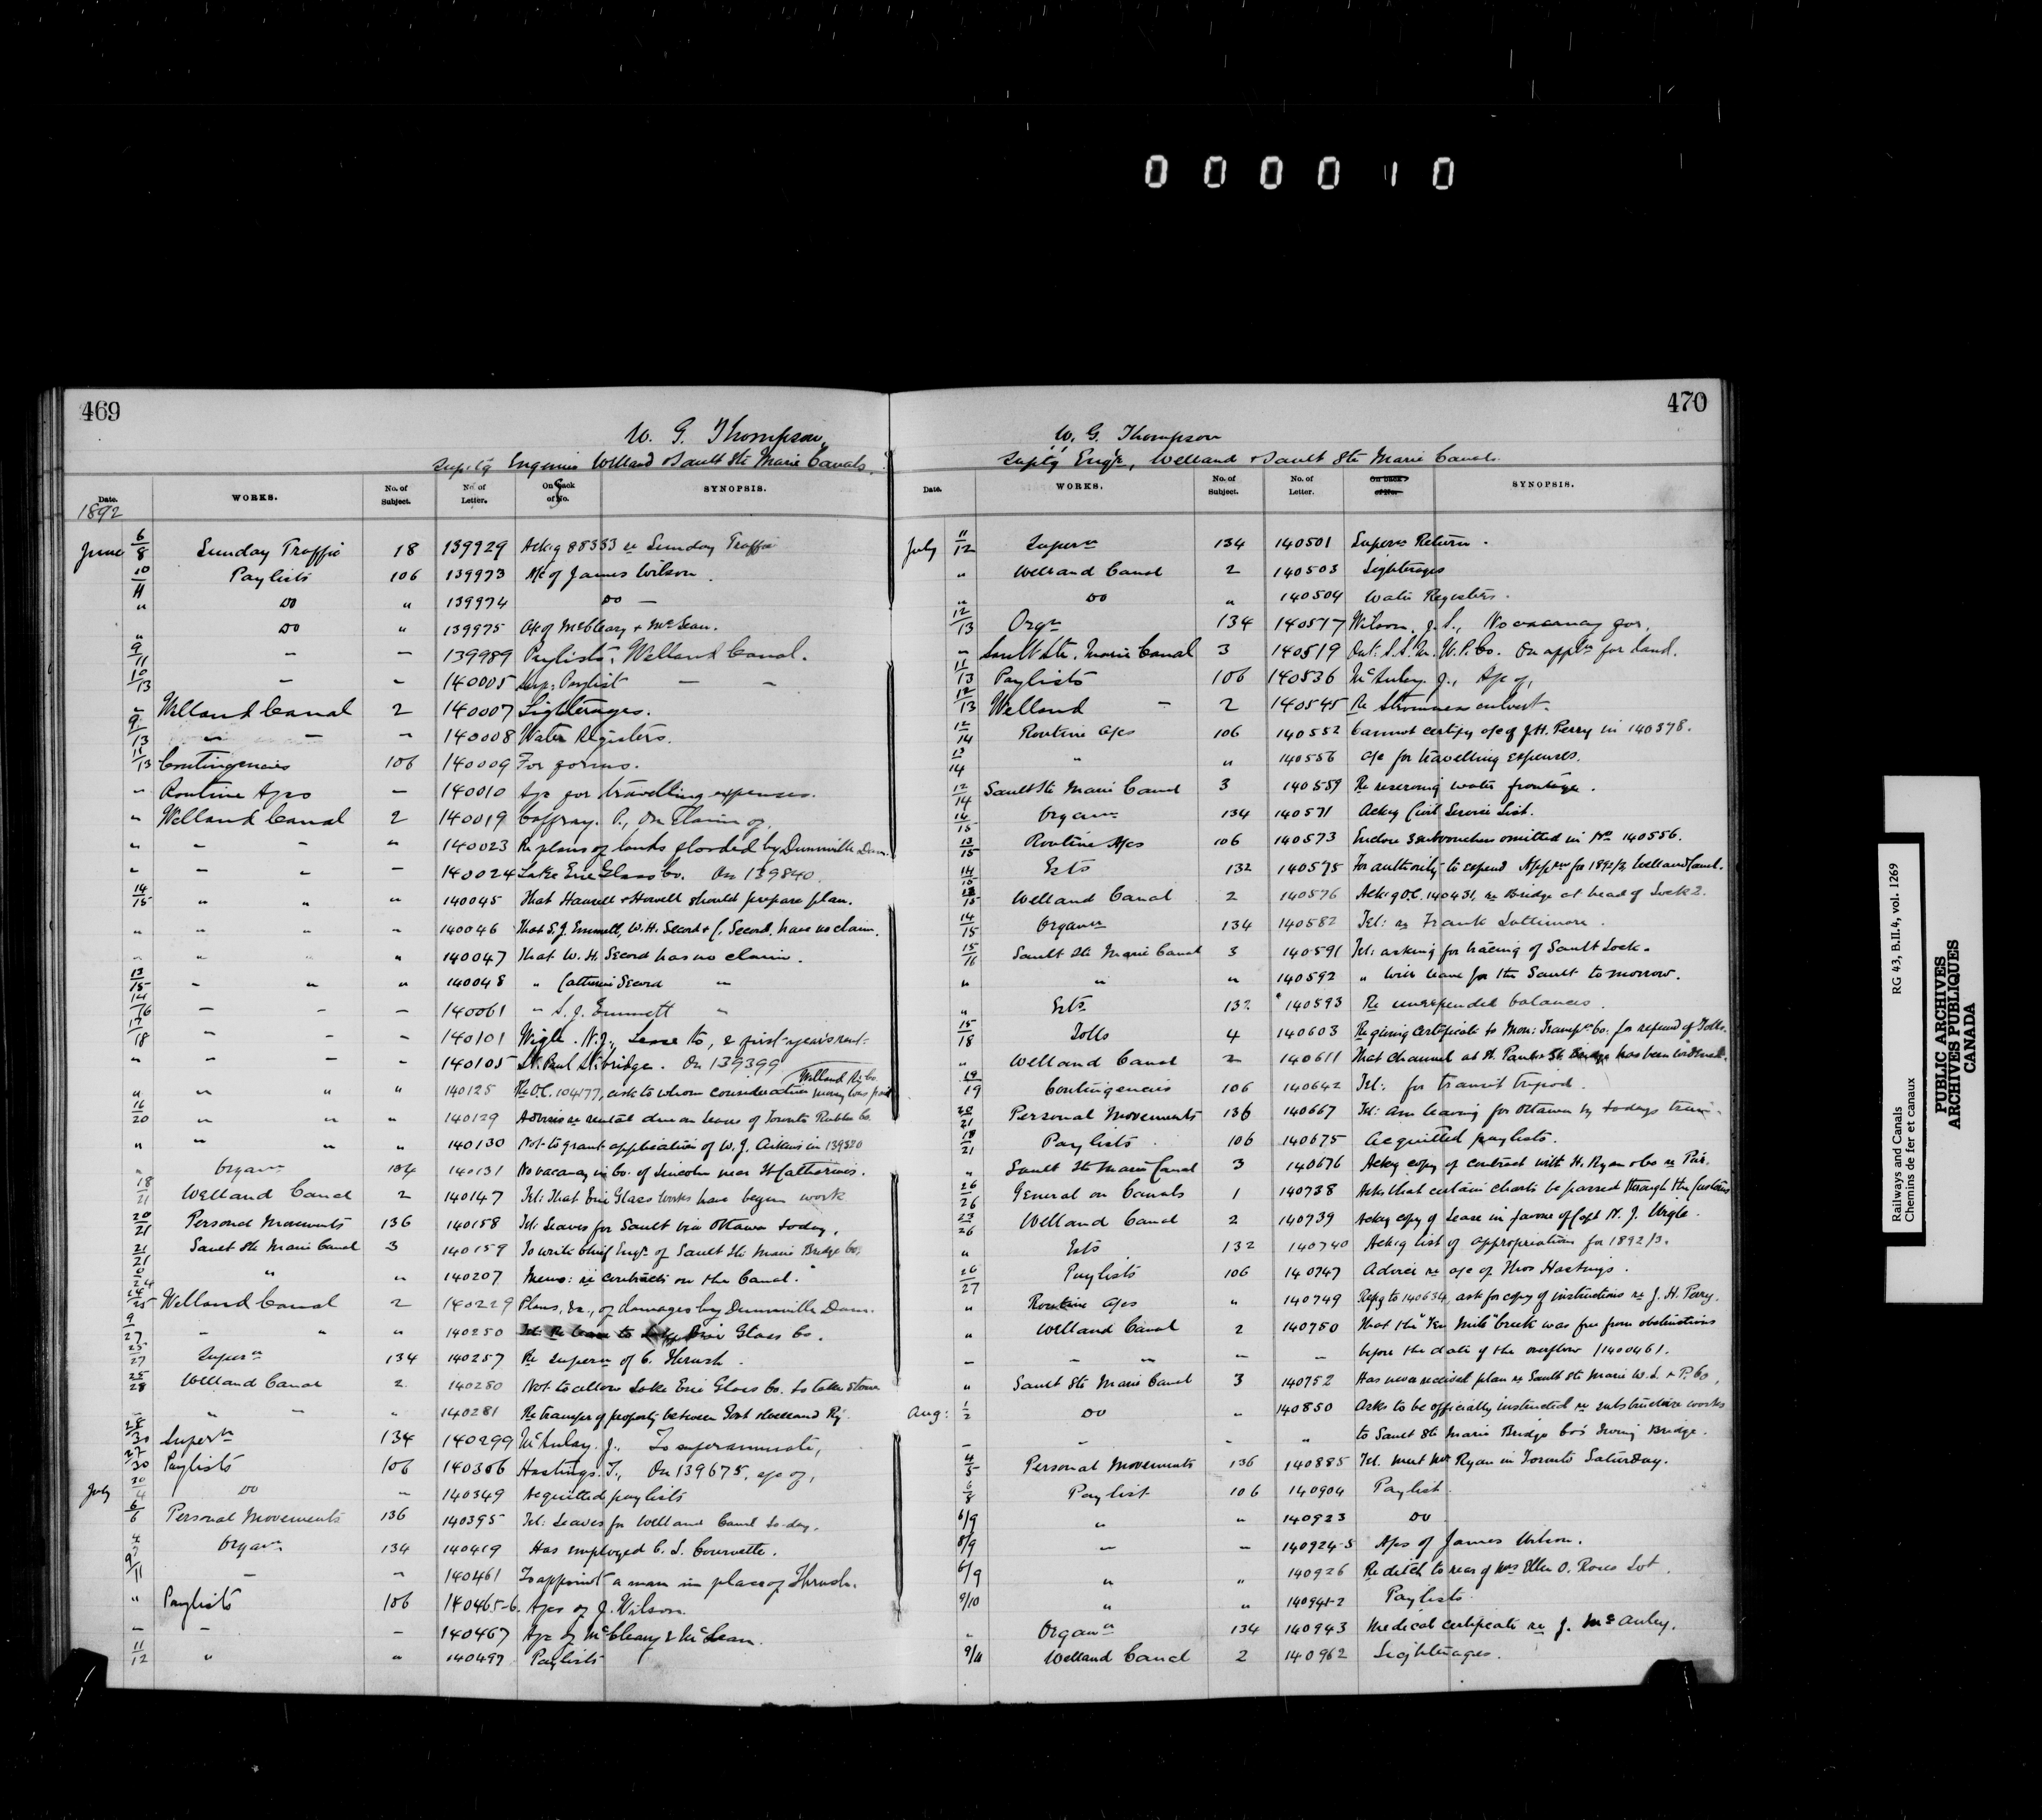 0 0 0 0 1 0
469
W. G. Thompson,
Suptg Engineer Welland & Sault Ste Marie Canals.
Date. WORKS. No. of Subject. No. of Letter. On Back of No. SYNOPSIS.
1892
June 6/8 Sunday Traffic 18 139929 Ackg 88333 re Sunday Traffic
10/11 Paylists 106 139973 A/c of James Wilson.
" Do " 139974 Do —
" Do " 139975 A/c of McCleary & McLean.
9/11 — — 139989 Paylists, Welland Canal.
10/13 — — 140005 Sup. Paylist — —
" Welland Canal 2 140007 Lighterages.
9/13 " — — 140008 Water Registers.
11/13 Contingencies 106 140009 For forms.
" Routine A/cs — 140010 A/c for travelling expenses.
" Welland Canal 2 140019 Caffray. P., On claim of,
" " " " 140023 Re plans of lands flooded by Dunnville Dam.
" — " — 140024 Lake Erie Glass Co. On 139840.
14/15 " " " 140045 That Hansell & Howell should prepare plan.
" " " " 140046 That S. J. Emmett, W. H. Secord & C. Secord, have no claim.
" " " " 140047 That W. H. Secord has no claim.
13/15 " " " 140048 " Catherine Secord "
14/16 — — — 140061 " S. J. Emmett "
17/18 — — — 140101 Wigle. N. J., Lease to, & first year's rent.
" " " — 140105 St. Paul St. bridge. On 139399
Welland Ry Co.
" " " " 140125 Re O.C. 104177, ask to whom consideration money was paid
16/20 " " " 140129 Advises re rental due on lease of Toronto Rubber Co.
" " " " 140130 Not to grant application of W. J. Aikens in 139320
" Organn 134 140131 No vacancy in Co. of Lincoln near St Catherines.
18/21 Welland Canal 2 140147 Tel: That Erie Glass works have began work
20/21 Personal Movements 136 140158 Tel: Leaves for Sault via Ottawa today.
21/21 Sault Ste Marie Canal 3 140159 To write Chief Engr. of Sault Ste Marie Bridge Co.
" " 140207 Memo: re contracts on the Canal.
24/25 Welland Canal 2 140229 Plans, &c., of damages by Dunnville Dam.
9/27 " " " 140250 Tel: Re lease to Lake Erie Glass Co.
25/27 Supern 134 140257 Re supern of C. Thrush.
25/28 Welland Canal 2 140280 Not to allow Lake Erie Glass Co. to take stone
" " — " 140281 Re transfer of property between Govt & Welland Ry.
28/30 Supern 134 140299 McAulay. J., To superannuate,
27/30 Paylists 106 140306 Hastings. T., On 139675, a/c of,
July 20/4 Do — 140349 Acquitted paylists
6/6 Personal Movements 136 140395 Tel: Leaves for Welland Canal to-day.
Organn 134 140419 Has employed C. S.
9/11 — — 140461 To appoint a man in place of Thrush.
" Paylists 106 140465-6. A/cs of J. Wilson.
— — — 140467 A/c of McCleary & McLean.
11/12 " " 140497 Paylists
470
W. G. Thompson
Suptg Engr, Welland & Sault Ste Marie Canals.
Date. WORKS. No. of Subject. No. of Letter. On back of No. SYNOPSIS.
July 11/12 Supern 134 140501 Supern Return.
" Welland Canal 2 140503 Lighterages
" Do " 140504 Water Registers.
12/13 Orgn 134 140517 Wilson, J. S., No vacancy for.
" Sault Ste. Marie Canal 3 140519 Ont: S. S. M. W. P. Co. On appln for land.
11/13 Paylists 106 140536 McAuley. J., A/c of,
12/13 Welland — 2 140545 Re Stromness culvert.
12/14 Routine A/cs 106 140552 Cannot certify a/c of J. H. Perry in 140378.
13/14 " " 140556 A/c for travelling expenses.
12/14 Sault Ste Marie Canal 3 140559 Re reserving water frontage.
14/15 Organn 134 140571 Ackg Civil Service List.
13/15 Routine A/cs 106 140573 Enclose subvouchers omitted in No 140556.
14/15 Ests 132 140575 For authority to expend Apprn for 1892/3, Welland Canal.
13/15 Welland Canal 2 140576 Ackg O.C. 140431, re Bridge at head of Lock 2.
14/15 Organn 134 140582 Tel: re Frank Lattimore.
15/16 Sault Ste Marie Canal 3 140591 Tel: asking for tracing of Sault Lock.
" " " 140592 " will leave for the Sault to morrow.
" Ests 132 140593 Re unexpended balances.
15/18 Tolls 4 140603 Re giving certificate to Mon: Transpn Co. for refund of Tolls.
" Welland Canal 2 140611 That channel at St Paul St Bridge has been widened.
19/19 Contingencies 106 140642 Tel: for transit tripod.
20/21 Personal Movements 136 140667 Tel: am leaving for Ottawa by todays train.
18/21 Paylists 106 140675 Acquitted paylists.
" Sault Ste Marie Canal 3 140676 Ackg copy of contract with H. Ryan & Co re Pier.
26/26 General on Canals 1 140738 Asks that certain charts be passed through the Customs
23/26 Welland Canal 2 140739 Ackg copy of Lease in favour of Capt N. J. Wigle.
" Ests 132 140740 Ackg list of appropriations for 1892/3.
26/27 Paylists 106 140747 Advice re a/c of Thos Hastings.
" Routine A/cs " 140749 Refg to 140634, ask for copy of instructions re J. H. Perry.
" Welland Canal 2 140750 That the "Ten Mile" Creek was free from obstructions
— — " — — before the date of the overflow /1400461.
" Sault Ste Marie Canal 3 140752 Has never received plan re Sault Ste Marie W. L. & P. Co,
Aug: 1/2 Do " 140850 Asks to be officially instructed re substructure works
— " " " to Sault Ste Marie Bridge Co's Swing Bridge.
4/5 Personal Movements 136 140885 Tel. meet Mr Ryan in Toronto Saturday.
6/8 Paylist 106 140904 Paylist.
6/9 " " 140923 Do
8/9 — — 140924-5 A/cs of James Wilson.
6/9 " " 140926 Re ditch to rear of Mrs Ellen O. Roses Lot.
9/10 " " 140941-2 Paylists.
" Organn 134 140943 Medical certificate re J. McAuley.
9/11 Welland Canal 2 140962 Lighterages.
Railways and Canals RG 43, B.II.4, vol. 1269
Chemins de fer et canaux
PUBLIC ARCHIVES
ARCHIVES PUBLIQUES
CANADA